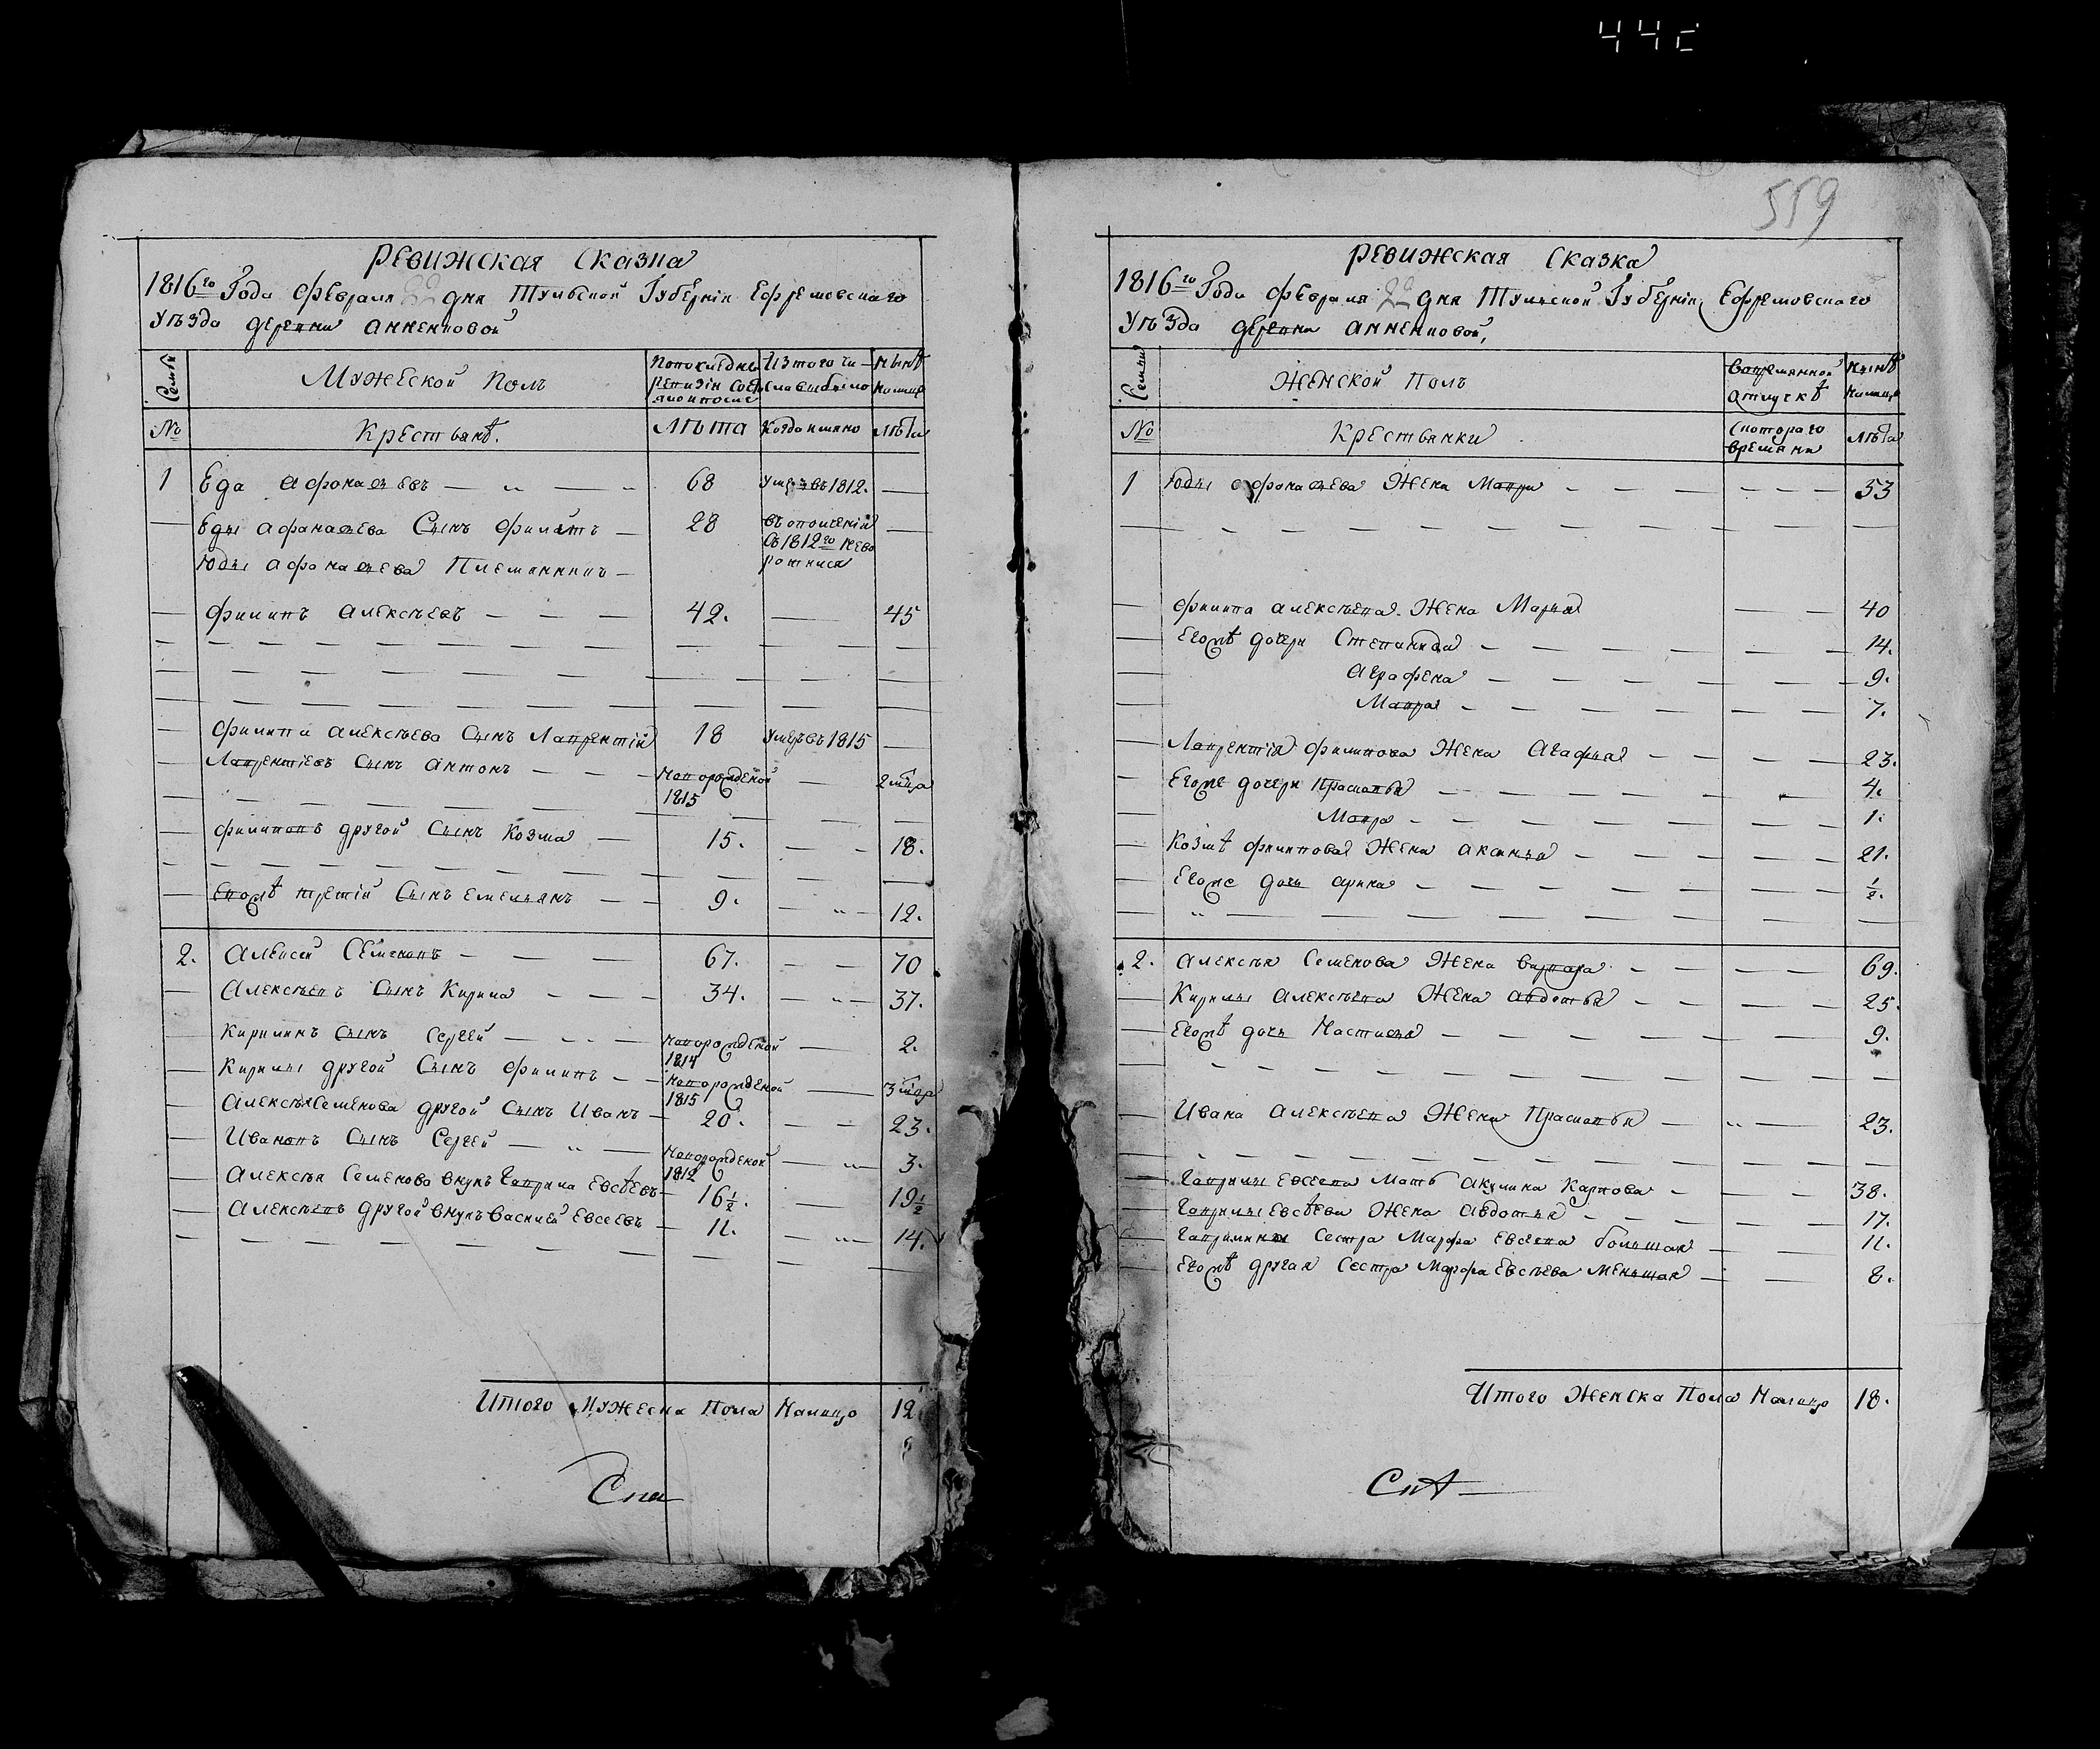 44с
559
Ревижская Сказка
1816го Года Февраля 22 дня Тульской Губерніи Ефремовскаго
уѣзда деревни анненковой
Семьи
Мужеской полъ
Попоследней ревизіи состояло ипосле
Изтого числа выбыло
нынѣ налицо
№
Крестьянѣ.
Лѣта
Когда имяно
лѣта
1 Еда афонасьевъ 68 умре въ 1812.
Еды афанасьева Сынъ филатъ 28 въ ополченіи
съ 1812го нево
ротился
Юды афонасьева Племянникъ
филипъ алексѣевъ 42. 45
филипа алексѣева сынъ Лаврентій 18 умеръ въ 1815
Лаврентіевъ сынъ антонъ новорожденой 2 мца
1815
филиповъ другой Сынъ Козма 15. 18.
Евожѣ третій Сынъ емельянъ 9. 12.
2. Алексей Семеновъ 67. 70
Алексѣевъ Сынъ Кирила 34. 37.
Кирилинъ Сынъ Сергей новорожденой 2.
1814
Кирилы другой Сынъ филипъ новорожденой 3 мца
1815
Алексѣя Семенова другой Сынъ Иванъ 20. 23.
Ивановъ Сынъ Сергей новорожденой 3.
1812
Алексѣя Семенова внукъ Гаврила Евсѣевъ 16½. 19½
Алексѣевъ другой внукъ Василей Евсеевъ 11. 14.
Итого Мужеска Пола Налицо 12
Ревижская Сказка
1816го Года февраля 22 дня Тульской Губерніи Ефремовскаго
уѣзда деревни анненковой,
Семьи
Женской полъ
Вовремянной отлучкѣ
нынѣ налицо
№
Крестьянки
Скотораго времяни
лѣта
1 Юды афонасьева Жена Мавра 53
филипа алексѣева Жена Марья 40
Егожѣ дочери Степанида 14.
аграфена 9.
Мавра 7.
Лаврентія филипова Жена Агафья 23.
Егоже дочери Прасковья 4.
Мавра 1.
Козмѣ филиппова Жена аксинья 21.
Егоже дочь арина ½.
2. алексѣя Семенова Жена Варвара 69.
Кирилы алексѣева Жена авдотья 25.
Егожѣ дочь Настасья 9.
Ивана алексѣева Жена Прасковья 23.
Гаврилы Евсеева Мать акулина Карпова 38.
Гаврилы Евсѣева Жена авдотья 17.
Гаврилина Сестра Марфа Евсеева большая 11.
Егожѣ другая Сестра Марфа Евсѣева меньшая 8.
Итого Женска Пола Налицо 18.